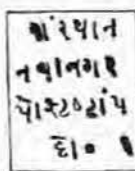 સંસ્થાન
નવાનગર
પોસ્ટટાંપ
દો૦ ૧